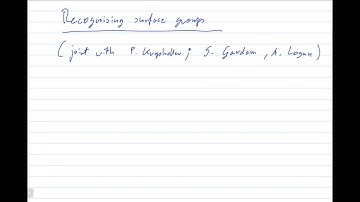 Recognising surface groups
(joint with P. Kropholler; G. Gardam, A. Logan)